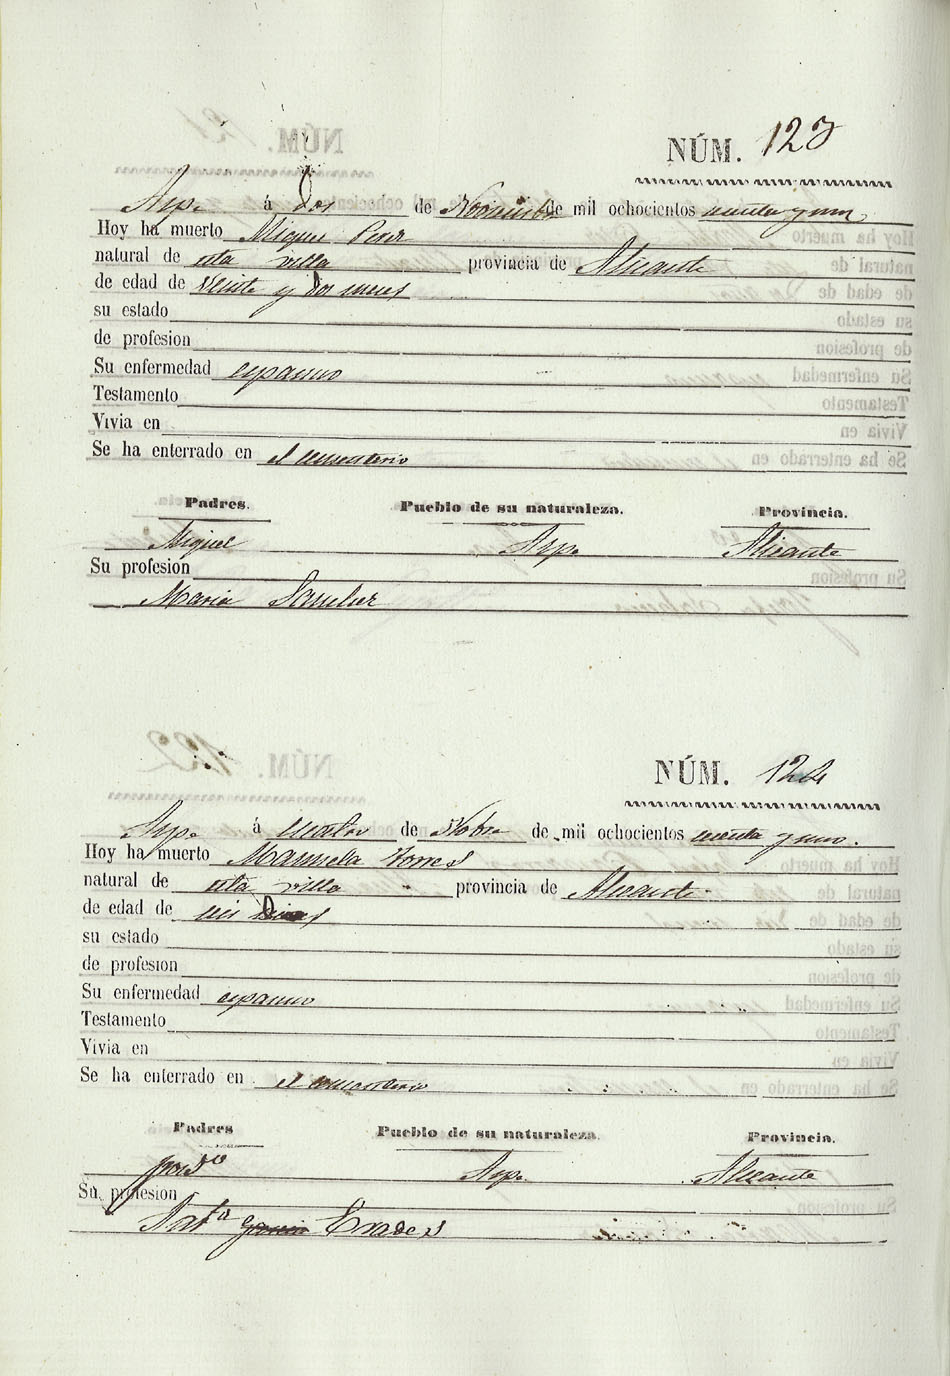 NÚM. 123
Aspe á dos de Noviembre de mil ochocientos y uno
Hoy ha muerto Miguel Perez
natural de esta villa provincia de Alicante
de edad de veinte y dos meses
su estado
de profesion
Su enfermedad espasmo
Testamento
Vivia en
Se ha enterrado en el cementerio
Padres. Pueblo de su naturaleza. Provincia.
Miguel Aspe Alicante
Su profesion
Maria Sanchez
NÚM. 124
Aspe á cuatro de Nobre de mil ochocientos y uno.
Hoy ha muerto Manuela Torres
natural de esta villa provincia de Alicante
de edad de seis
su estado
de profesion
Su enfermedad espasmo
Testamento
Vivia en
Se ha enterrado en el cementerio
Padres Pueblo de su naturaleza. Provincia.
Aspe Alicante
Su profesion